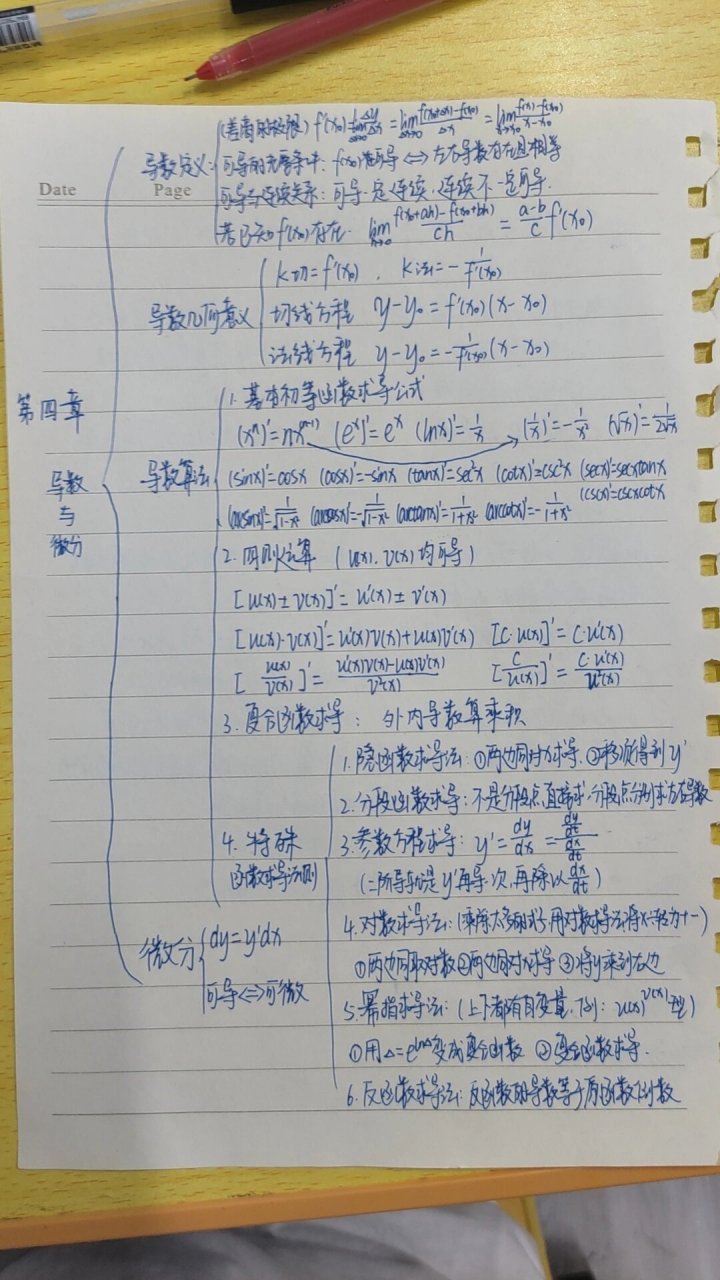 Date Page
第四章
导数
与
微分
导数定义:
(差商的极限) f'(x₀) = lim_{Δx→0} Δy/Δx = lim_{Δx→0} (f(x₀+Δx)-f(x₀))/Δx = lim_{x→x₀} (f(x)-f(x₀))/(x-x₀)
可导的充要条件: f(x)可导 ⇔ 左右导数存在且相等
可导与连续关系: 可导一定连续, 连续不一定可导.
若已知f'(x₀)存在. lim_{h→0} (f(x₀+ah)-f(x₀+bh))/ch = (a-b)/c f'(x₀)
导数几何意义
k切=f'(x₀) , k法=-1/f'(x₀)
切线方程 y-y₀=f'(x₀)(x-x₀)
法线方程 y-y₀=-1/f'(x₀)(x-x₀)
导数算法
1. 基本初等函数求导公式
(xⁿ)'=nxⁿ⁻¹ (eˣ)'=eˣ (lnx)'=1/x (1/x)'=-1/x² (√x)'=1/(2√x)
(sinx)'=cosx (cosx)'=-sinx (tanx)'=sec²x (cotx)'=csc²x (secx)'=secxtanx
(cscx)'=cscxcotx
(arcsinx)'=1/√(1-x²) (arccosx)'=-1/√(1-x²) (arctanx)'=1/(1+x²) (arccotx)'=-1/(1+x²)
2. 四则运算 (u(x). v(x)均可导)
[u(x)±v(x)]'=u'(x)±v'(x)
[u(x)·v(x)]'=u'(x)v(x)+u(x)v'(x) [C·u(x)]'=C·u'(x)
[u(x)/v(x)]'=(u'(x)v(x)-u(x)v'(x))/v²(x) [C/u(x)]'=C·u'(x)/u²(x)
3. 复合函数求导: 外内导数算乘积
4. 特殊
函数求导法则
1. 隐函数求导法: ①两边同对x求导. ②移项得到y'
2. 分段函数求导: 不是分段点直接求, 分段点分别求左右导数
3. 参数方程求导: y'=dy/dx=(dy/dt)/(dx/dt)
(二阶导就是y'再导一次, 再除以dx/dt)
4. 对数求导法: (乘除太多的式子, 用对数求导法将×÷转为+-)
①两边同取对数 ②两边同对x求导 ③将y乘到右边
5. 幂指求导法: (上下都有自变量, 例: u(x)^v(x)型)
①用△=e^{ln△}变成复合函数 ②复合函数求导.
6. 反函数求导法: 反函数的导数等于原函数倒数
微分
dy=y'dx
可导⇔可微